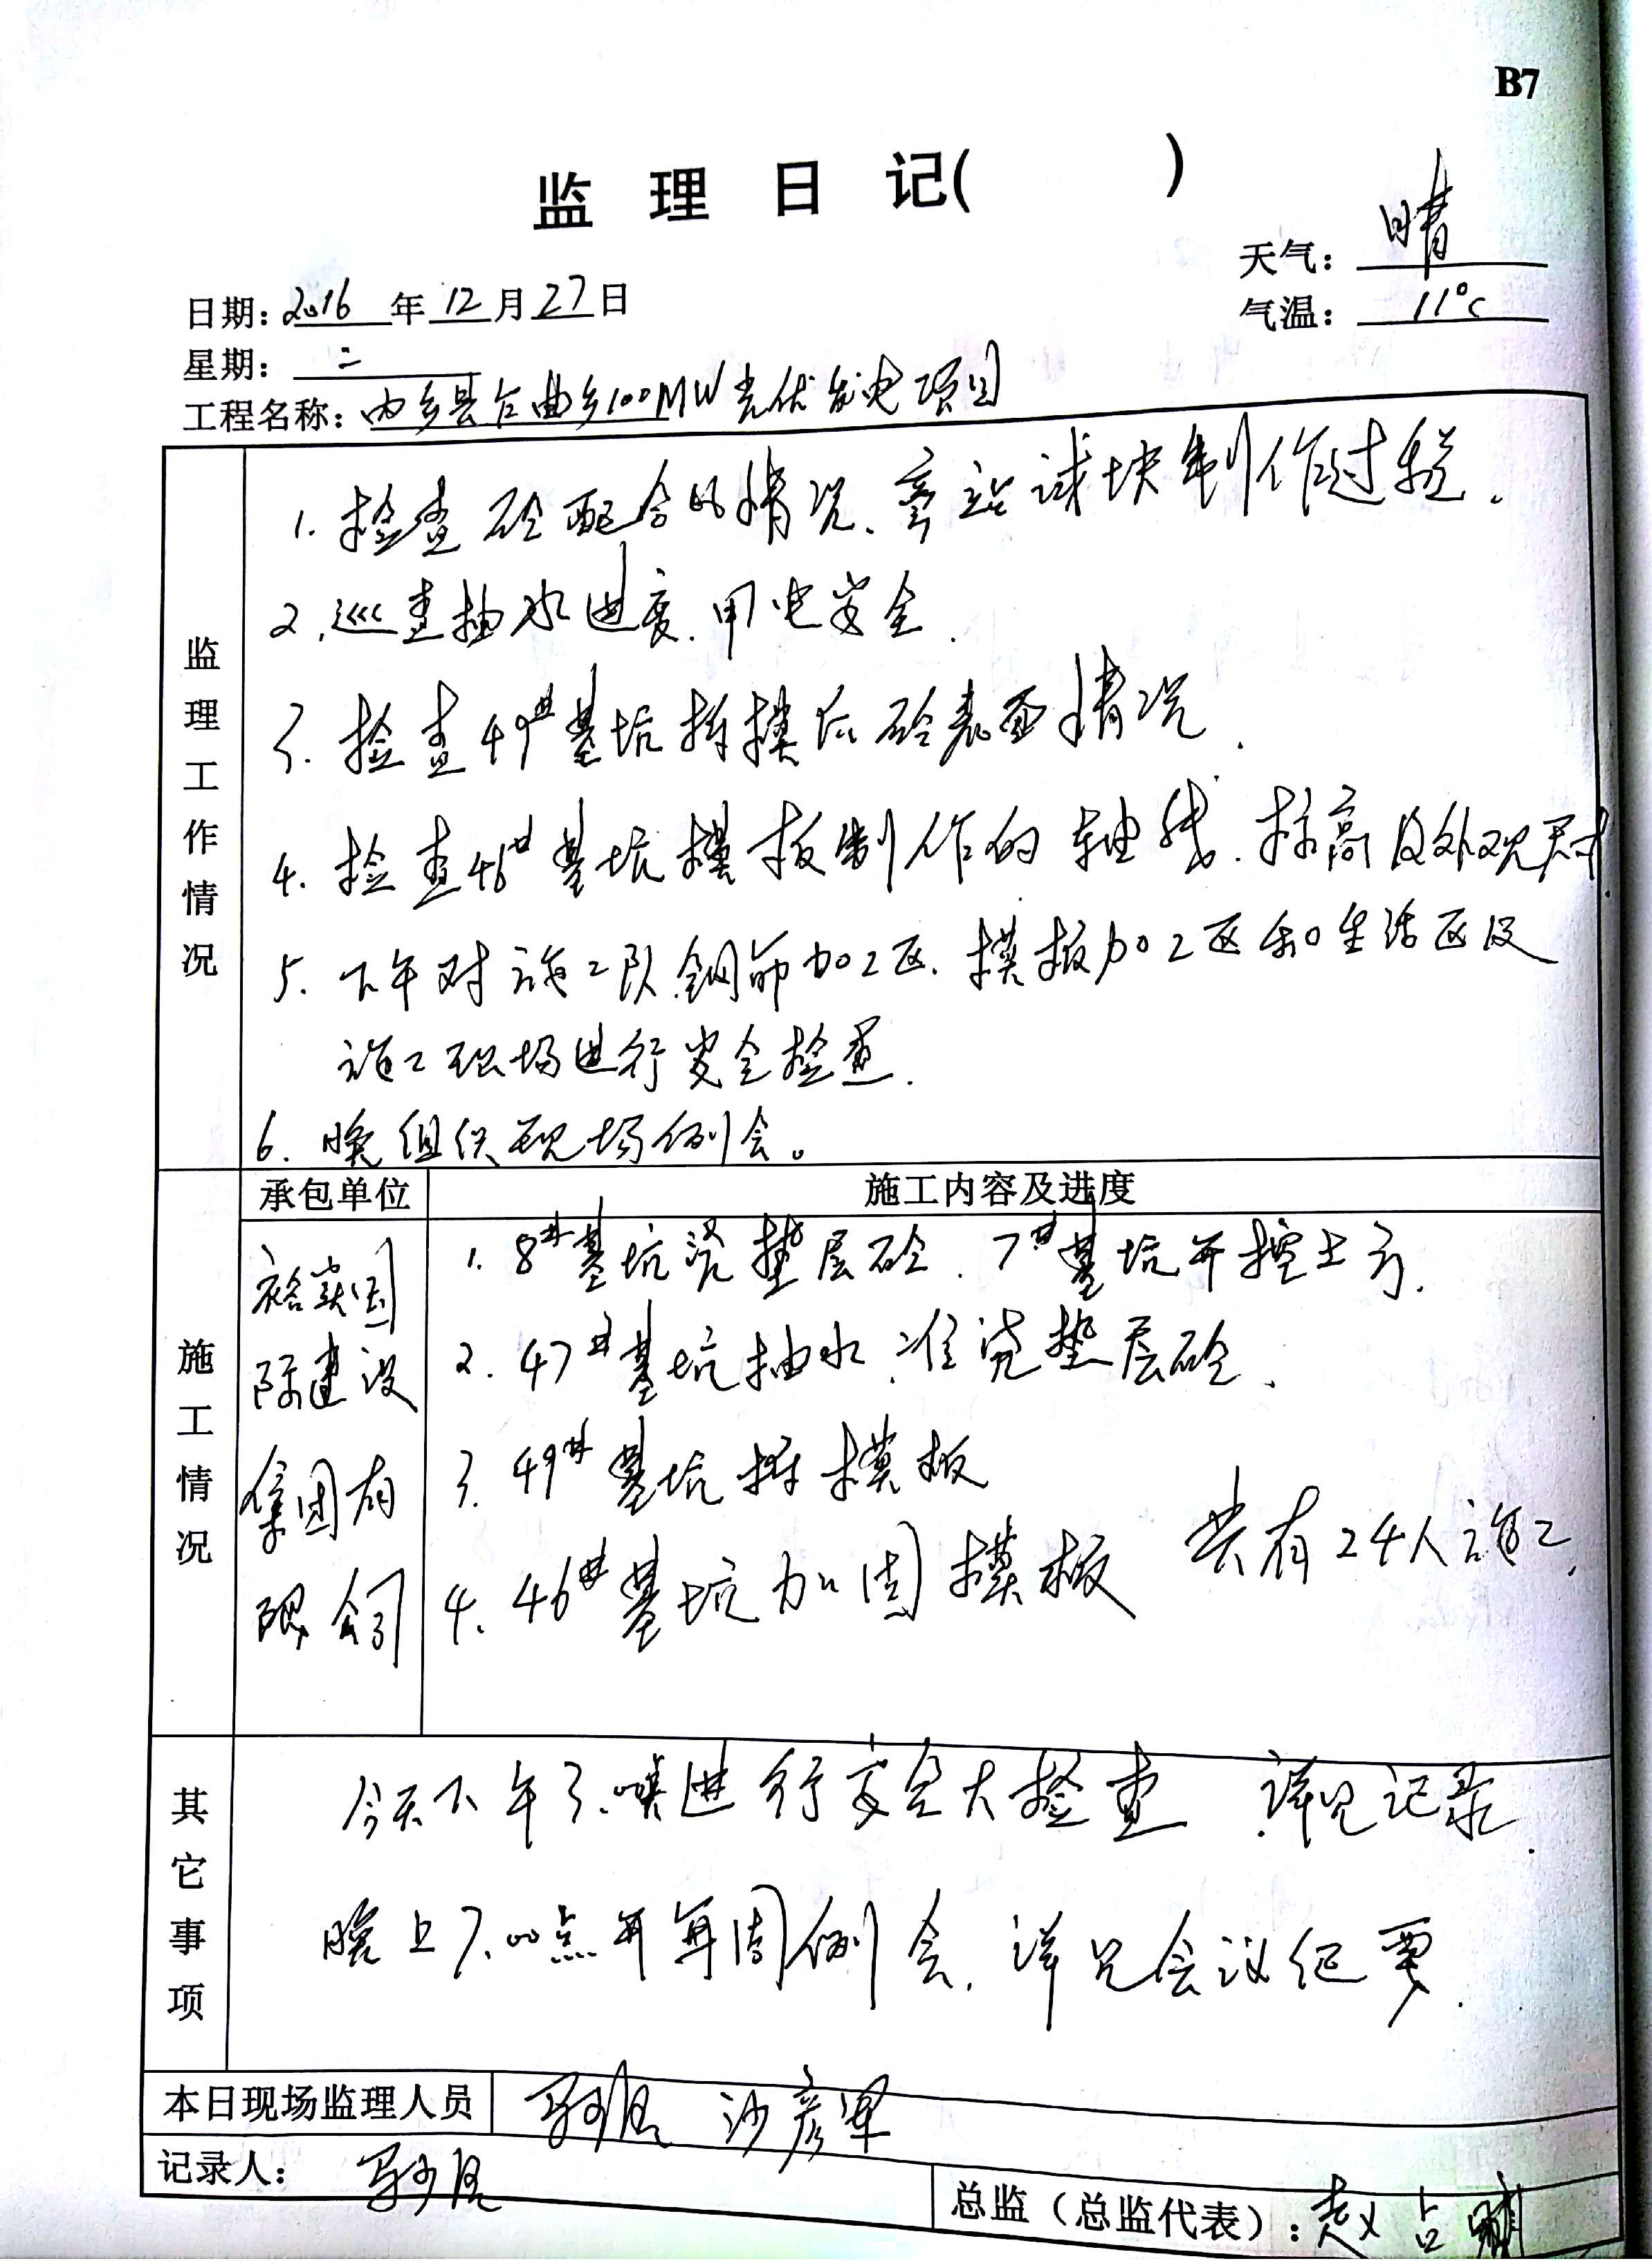 B7
监理日记( )
天气：晴
日期：2016年12月27日
气温：11°C
星期：二
工程名称：内乡县合曲乡100MW光伏发电项目
监理工作情况
1. 检查砼配合的情况、旁站试块制作过程。
2. 巡查抽水进度、用电安全.
3. 检查49#基坑拆模后砼表面情况.
4. 检查46#基坑模板制作的轴线、标高及外观尺寸.
5. 下午对施工队钢筋加工区、模板加工区和生活区及
施工现场进行安全检查.
6. 晚组织现场例会。
承包单位 施工内容及进度
施工情况
裕宾国
际建设
集团有
限公司
1. 8#基坑浇垫层砼. 7#基坑开挖土方.
2. 47#基坑抽水,准浇垫层砼.
3. 49#基坑拆模板
4. 46#基坑加固模板 共有24人施工.
其它事项
今天下午3.进行安全大检查 详见记录.
晚上7.00点开每周例会. 详见会议纪要.
本日现场监理人员 沙彦军
记录人：
总监（总监代表）：赵占